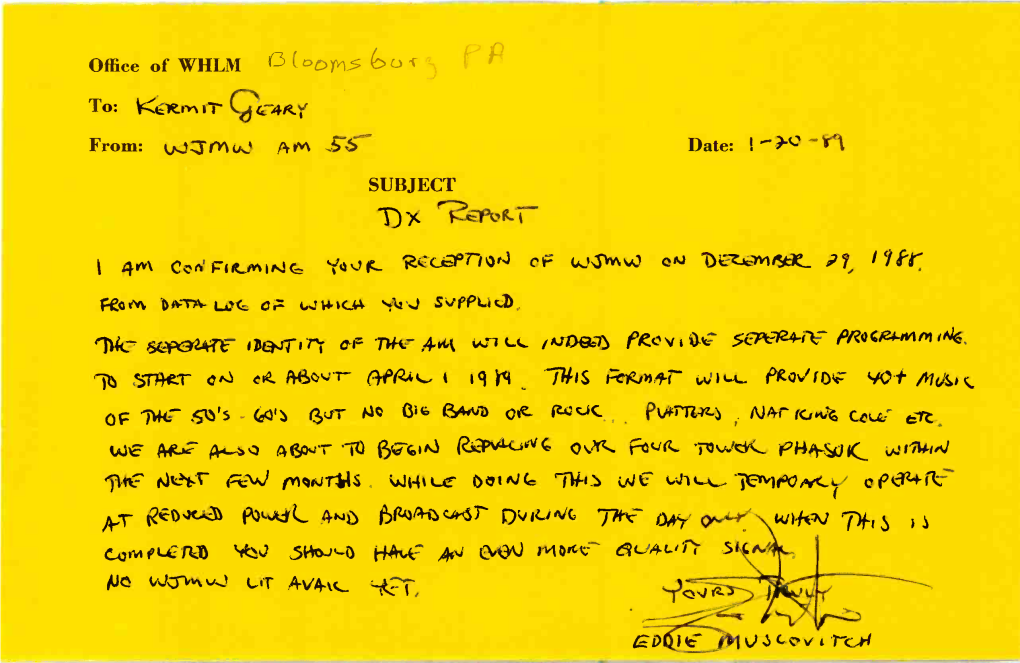 Office of WHLM Bloomsburg PA
To: KERMIT GEARY
From: WJMW AM 55 Date: 1-20-89
SUBJECT
DX REPORT
I AM CONFIRMING YOUR RECEPTION OF WJMW ON DECEMBER 29, 1988.
FROM DATA LOG OF WHICH YOU SUPPLIED.
THE SEPERATE IDENTITY OF THE AM WILL INDEED PROVIDE SEPERATE PROGRAMMING.
TO START ON OR ABOUT APRIL 1 1989. THIS FORMAT WILL PROVIDE 40+ MUSIC
OF THE 50'S - 60'S BUT NO BIG BAND OR ROCK... PLATTERS, NAT KING COLE ETC.
WE ARE ALSO ABOUT TO BEGIN REPLACING OUR FOUR TOWER PHASOR WITHIN
THE NEXT FEW MONTHS. WHILE DOING THIS WE WILL TEMPORARLY OPERATE
AT REDUCED POWER AND BROADCAST DURING THE DAY ONLY. WHEN THIS IS
COMPLETED YOU SHOULD HAVE AN EVEN MORE QUALITY SIGNAL.
NO WJMW LIT AVAIL YET.
YOURS TRULY
EDDIE MUSCOVITCH